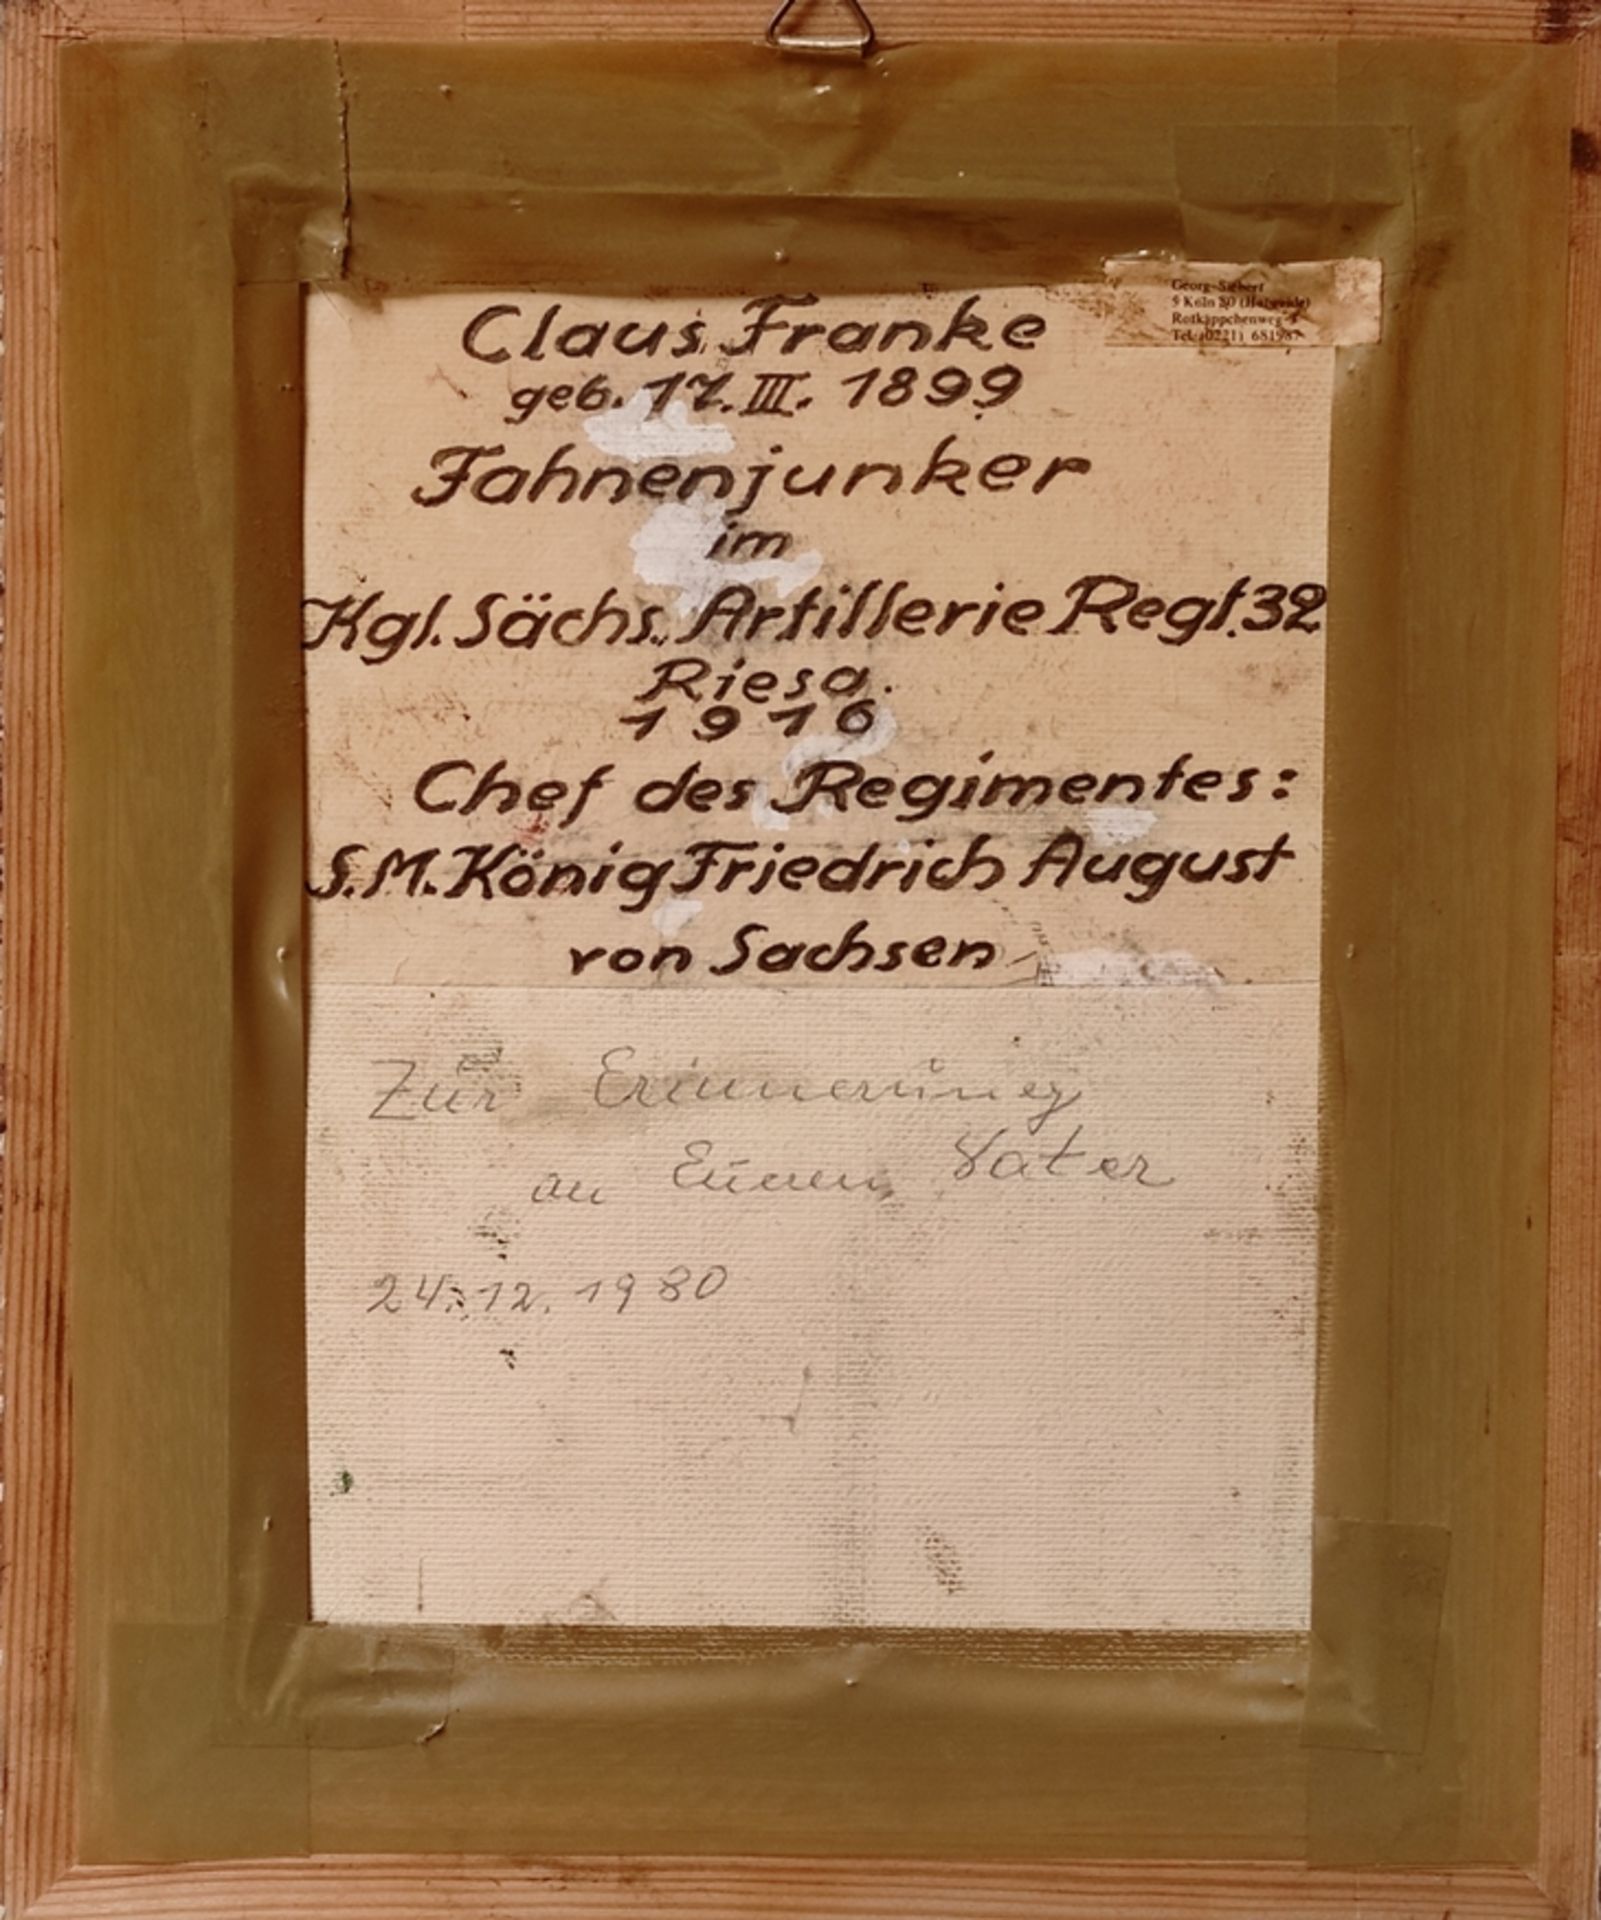 Georg Siebert
5 Köln 80 (Holweide)
Rotkäppchenweg
Tel. (0221) 681987
Claus Franke
geb. 17. III. 1899
Fahnenjunker
im
Kgl. Sächs. Artillerie Regt. 32
Riesa.
1916
Chef des Regimentes:
S.M. König Friedrich August
von Sachsen
Zur Erinnerung
an Euren Vater
24. 12. 1980